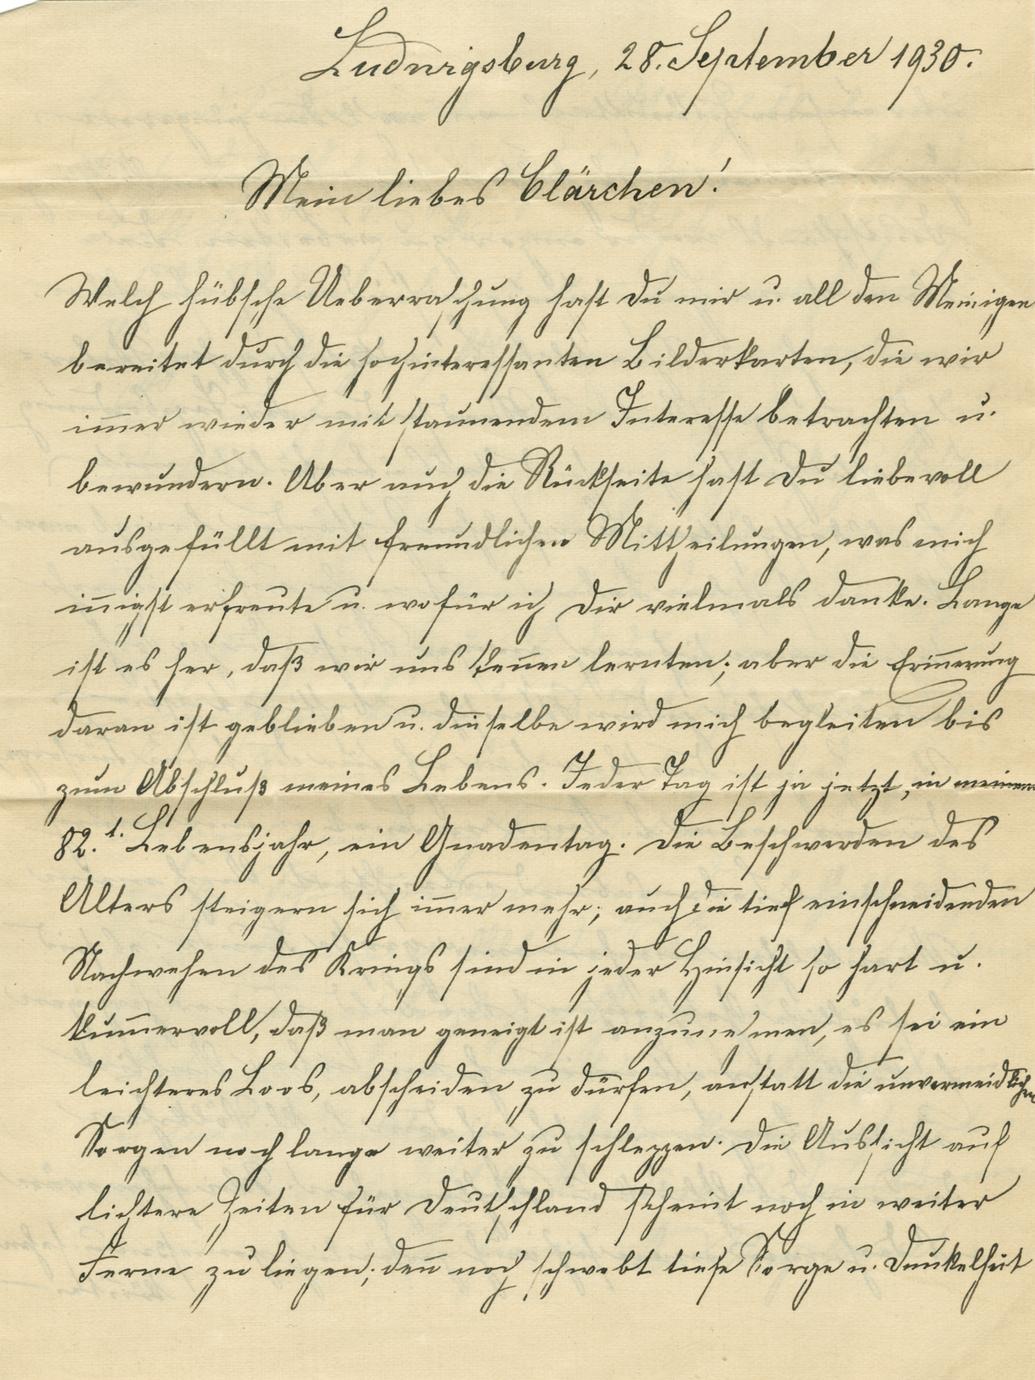 Ludwigsburg, 28. September 1930.
Mein liebes Clärchen!
Welch hübsche Ueberraschung hast Du mir u. all den Meinigen
bereitet durch die hochinteressanten Bilderkarten, die wir
im̅er wieder mit staunendem Interesse betrachten u.
bewundern. Aber auch die Rückseite hast Du liebevoll
ausgefüllt mit freundlichen Mittheilungen, was mich
in̅igst erfreute u. wofür ich Dir vielmals danke. Lange
ist es her, daß wir uns ken̅en lernten; aber die Erin̅erung
daran ist geblieben u. dieselbe wird mich begleiten bis
zum Abschluß meines Lebens. Jeder Tag ist ja jetzt, in meinem
82. t. Lebensjahr, ein Gnadentag. Die Beschwerden des
Alters steigern sich im̅er mehr; auch die tief einschneidenden
Nachwehen des Kriegs sind in jeder Hinsicht so hart u.
kum̅ervoll, daß man geneigt ist anzunehmen, es sei ein
leichteres Loos, abscheiden zu dürfen, anstatt die unvermeidlichen
Sorgen noch lange weiter zu schleppen. Die Aussicht auf
lichtere Zeiten für Deutschland scheint noch in weiter
Ferne zu liegen; den̅ noch schwebt tiefe Sorge u. Dunkelheit